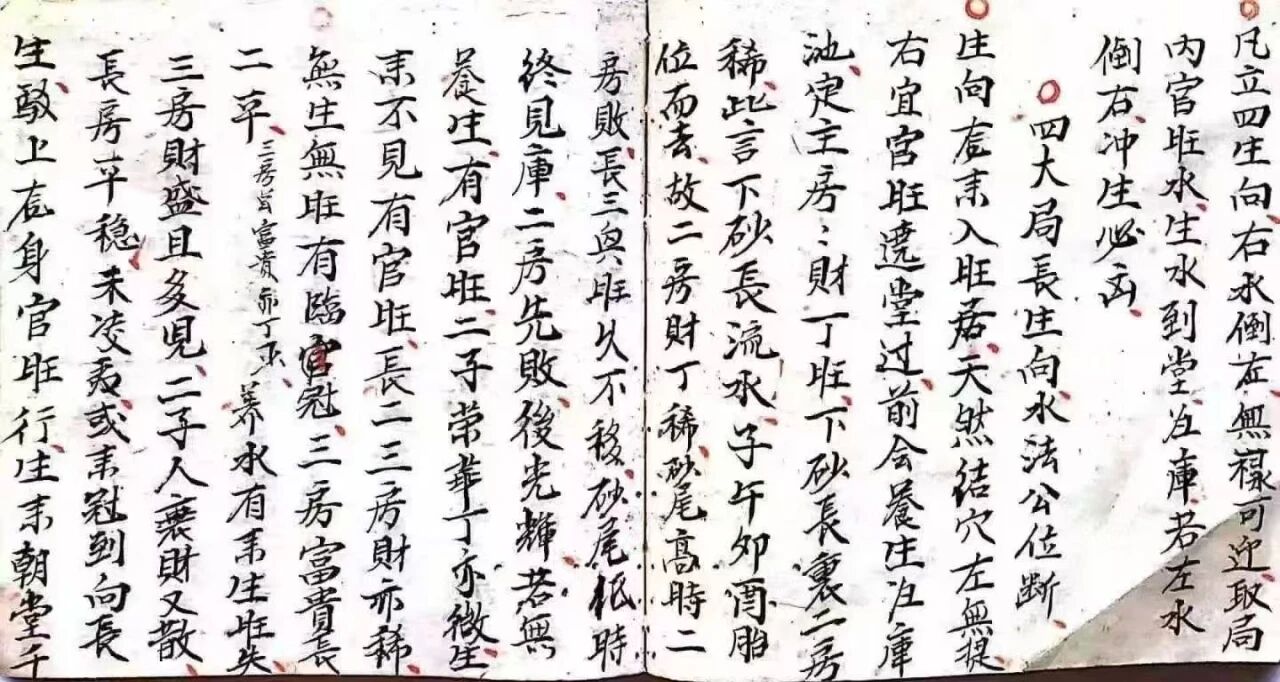 凡立四生向右水倒左無祿可迎取局
內官旺水生水到堂沍庫若左水
倒右冲生必凶
四大局長生向水法公位断
生向庒耒入旺居天然结穴左無提
右宜官旺遶堂过前会養生沍庫
池定主房〻財丁旺下砂長裏二房
稀此言下砂長流水子午卯酉胎
位而去故二房財丁稀砂尾高時二
房敗長三與旺久不移砂尾低時
終見庫二房先敗後光輝若無
養生有官旺二子荣華丁亦微生
耒不見有官旺長二三房財亦稀
無生無旺有臨官冠三房富貴長
二平三房曾富貴亦丁不养水有耒生旺失
三房財盛且多児二子人衰財又散
長房平穏未凌若或耒冠到向長
生馭上庒身官旺行生耒朝堂千